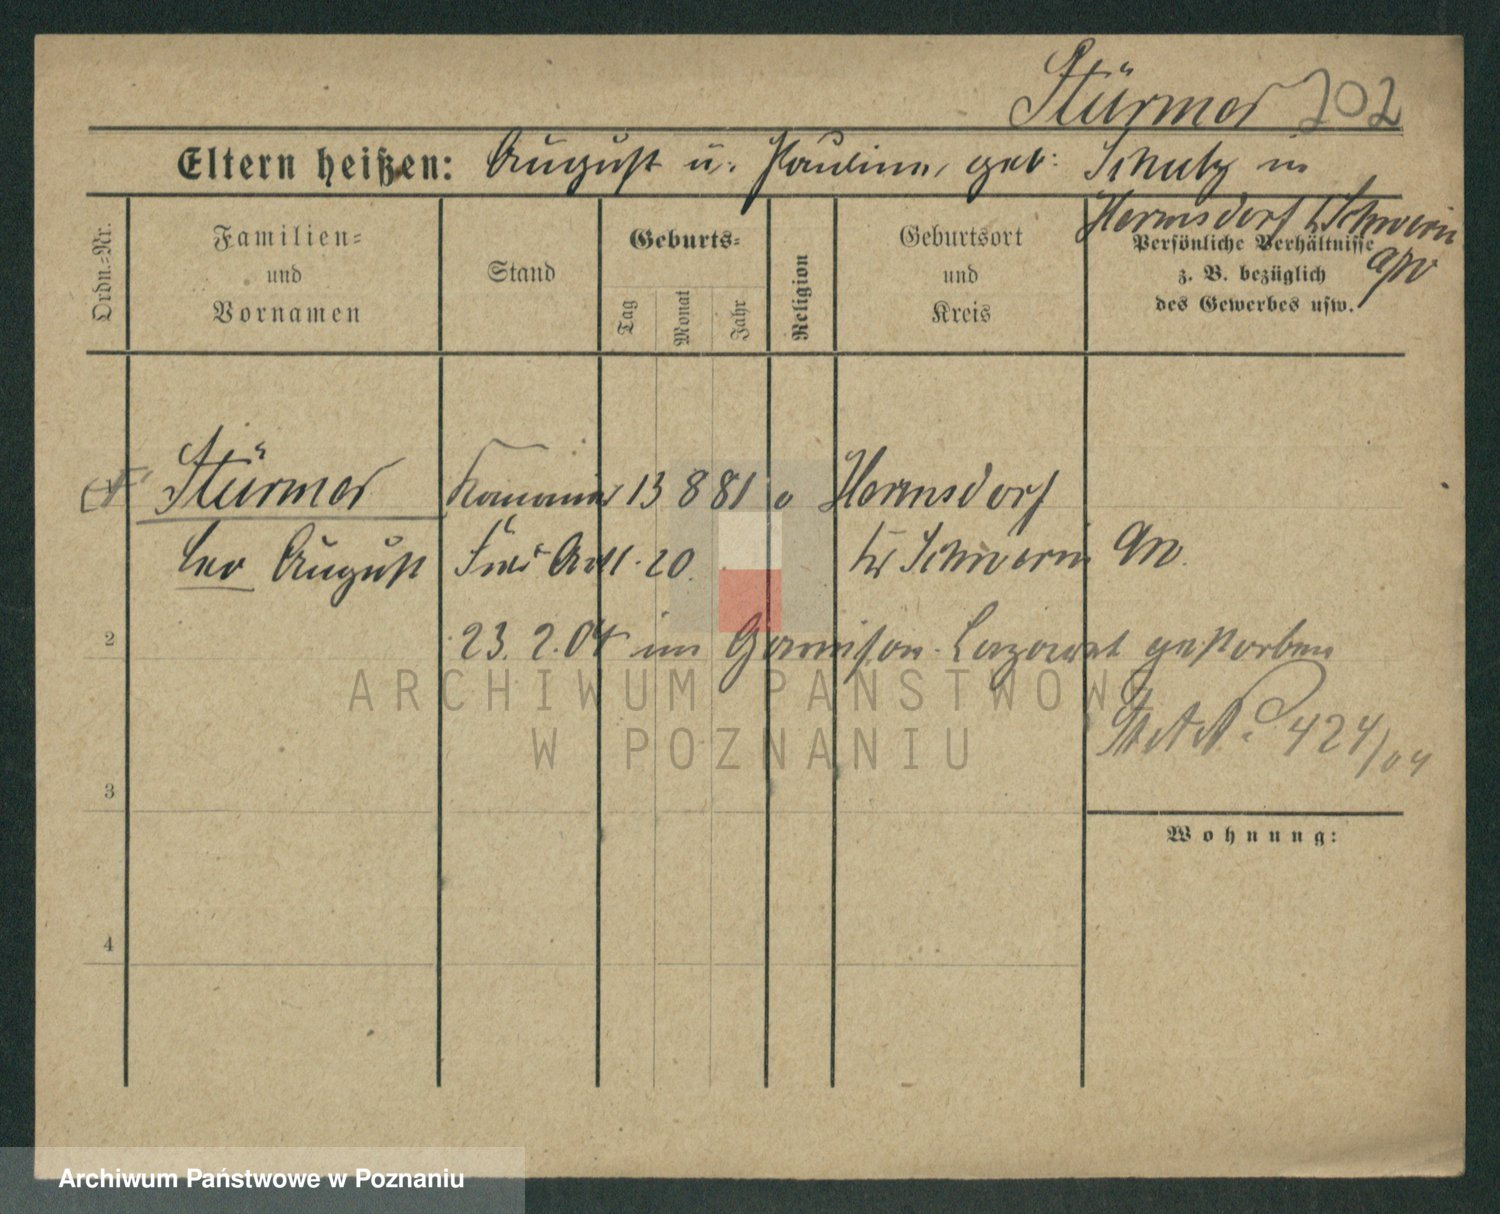 Stürmer 202
Eltern heißen: August u. Pauline, geb: Schulz in
Hermsdorf Kr Schwerin
a/W
Ordn.-Nr.
Familien-
und
Vornamen
Stand
Geburts-
Tag
Monat
Jahr
Religion
Geburtsort
und
Kreis
Persönliche Verhältnisse
z. B. bezüglich
des Gewerbes usw.
Stürmer Kanonier 13 8 81 Hermsdorf
Leo August Feld Artl. 20. Kr Schwerin a/W.
2
23. 2. 04 im Garnison-Lazaret gestorben
424/04
3
Wohnung:
4
ARCHIWUM PAŃSTWOWE
W POZNANIU
Archiwum Państwowe w Poznaniu